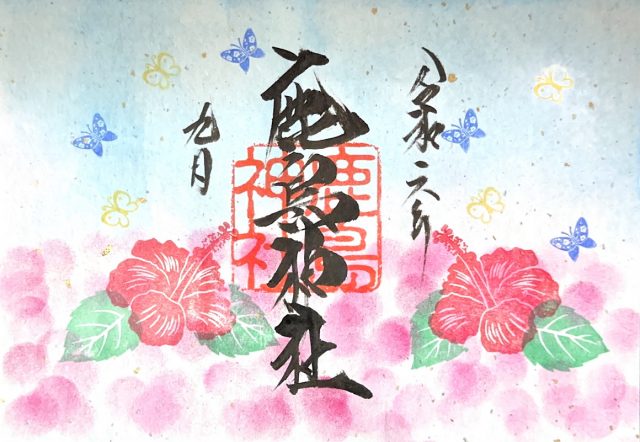 令和六年
鹿島神社
鹿島
神社
九月